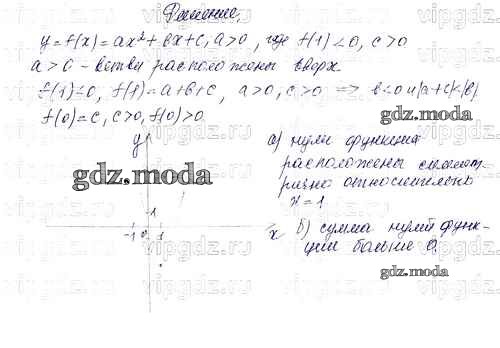 Решение.
y = f(x) = ax² + bx + c, a > 0, где f(1) < 0, c > 0
a > 0 - ветви расположены вверх.
f(1) < 0, f(1) = a + b + c, a > 0, c > 0 => b < 0 и |a + c| < |b|
gdz.moda
f(0) = c, c > 0, f(0) > 0
y
gdz.moda
1
-1 0 1
x
а) нули функции
расположены симмет
рично относительно
x = 1
б) сумма нулей функ-
ции больше 0.
gdz.moda